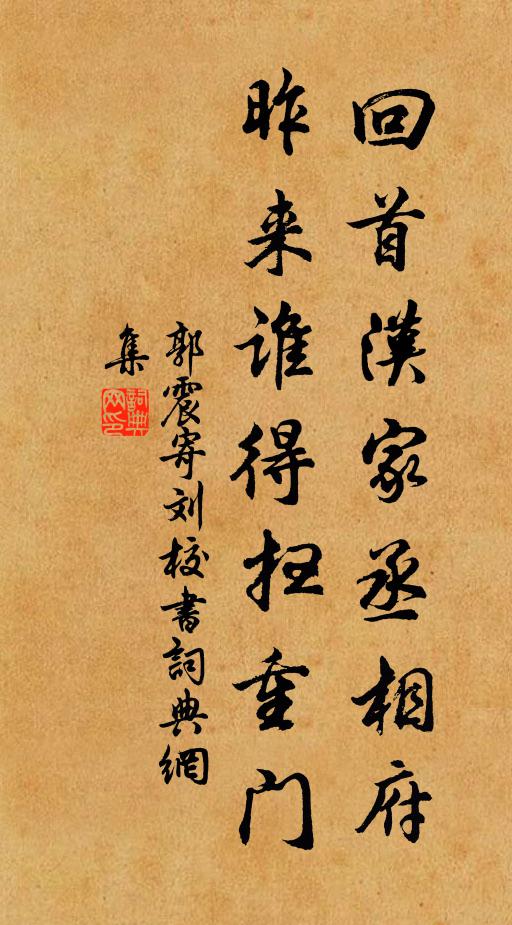 回首漢家丞相府
昨来谁得扫重门
郭震寄刘校書詞典網
集
詞典
网印